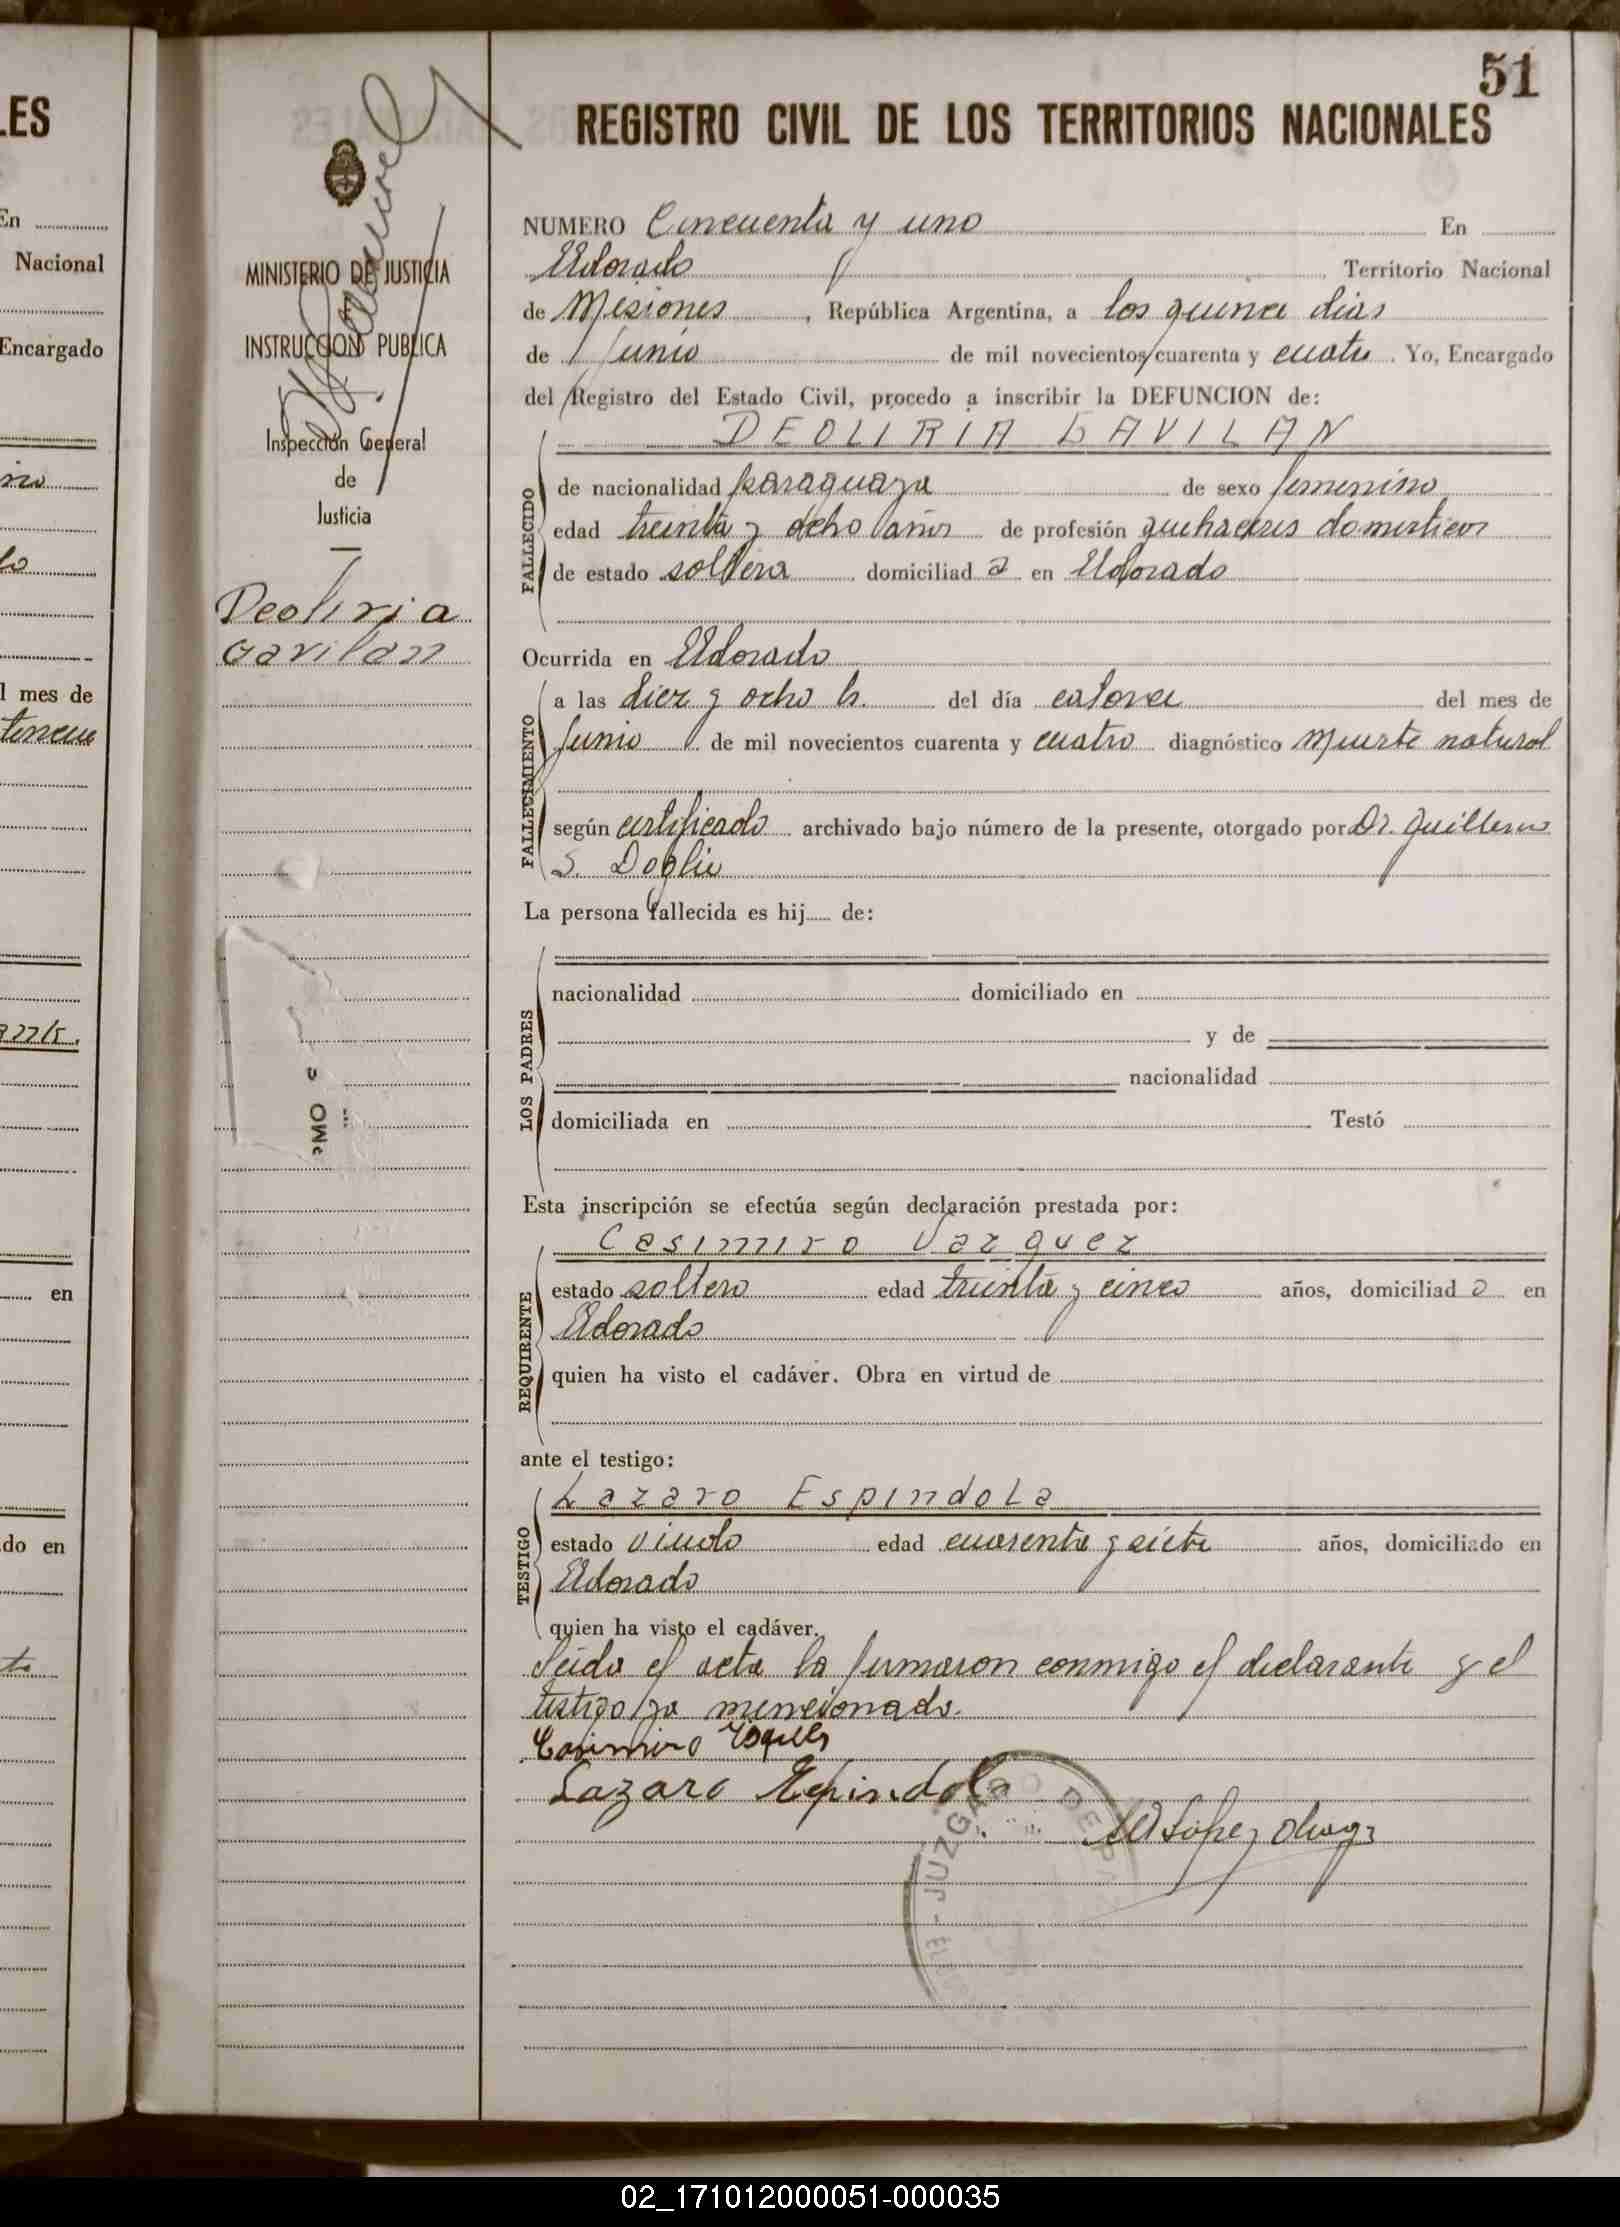 51
REGISTRO CIVIL DE LOS TERRITORIOS NACIONALES
NUMERO Cincuenta y uno En
Eldorado Territorio Nacional
de Misiones, República Argentina, a los quince dias
de Junio de mil novecientos cuarenta y cuatro. Yo, Encargado
del Registro del Estado Civil, procedo a inscribir la DEFUNCION de:
DEOLIRIA GAVILAN
FALLECIDO
de nacionalidad paraguaya de sexo femenino
edad treinta y ocho años de profesión quehaceres domesticos
de estado soltera domiciliad a en Eldorado
Ocurrida en Eldorado
FALLECIMIENTO
a las diez y ocho h. del día catorce del mes de
Junio de mil novecientos cuarenta y cuatro diagnóstico Muerte natural
según certificado archivado bajo número de la presente, otorgado por Dr. Guillermo
S. Doglio
La persona fallecida es hij de:
LOS PADRES
nacionalidad domiciliado en
y de
nacionalidad
domiciliada en Testó
Esta inscripción se efectúa según declaración prestada por:
Casimiro Vazquez
REQUIRENTE
estado soltero edad treinta y cinco años, domiciliad o en
Eldorado
quien ha visto el cadáver. Obra en virtud de
ante el testigo:
Lazaro Espindola
TESTIGO
estado viudo edad cuarenta y siete años, domiciliado en
Eldorado
quien ha visto el cadáver.
Leida el acta la firmaron conmigo el declarante y el
testigo ya mencionado.
Casimiro
Lazaro Espindola
JUZGADO DE PAZ
MINISTERIO DE JUSTICIA
INSTRUCCION PUBLICA
Inspección General
de
Justicia
Deoliria
Gavilan
LES
En
Nacional
Encargado
l mes de
en
do en
02_171012000051-000035